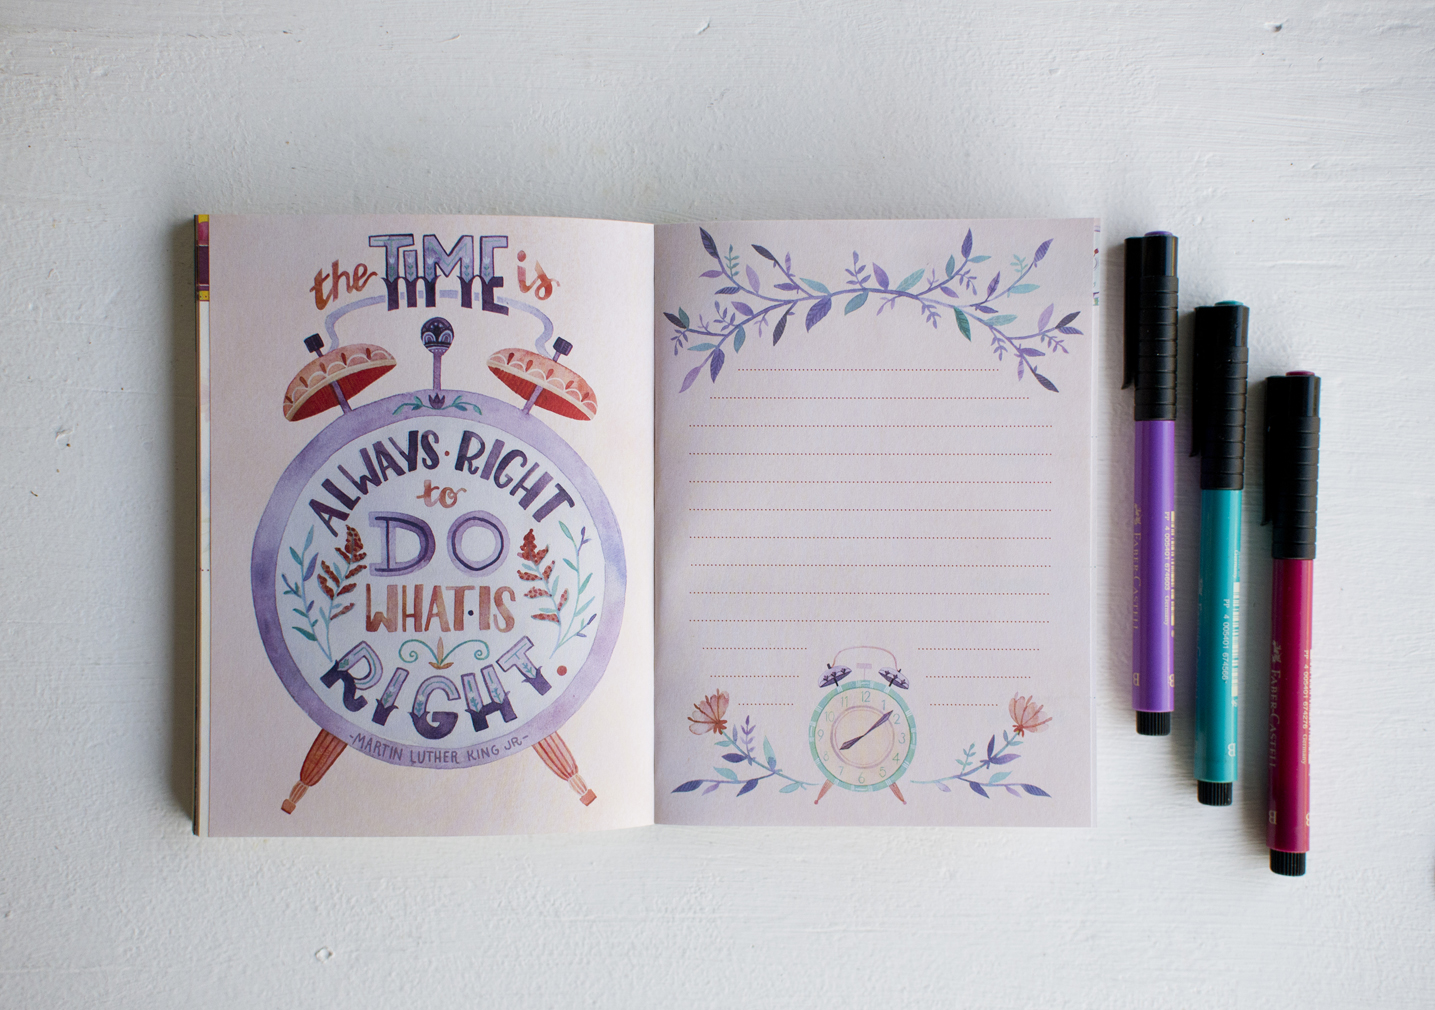 the TIME is
ALWAYS·RIGHT
to
DO
WHAT·IS
RIGHT.
-MARTIN LUTHER KING JR-
12
11 1
10 2
3
8 4
7 5
6
FABER-CASTELL
B
FABER-CASTELL
B